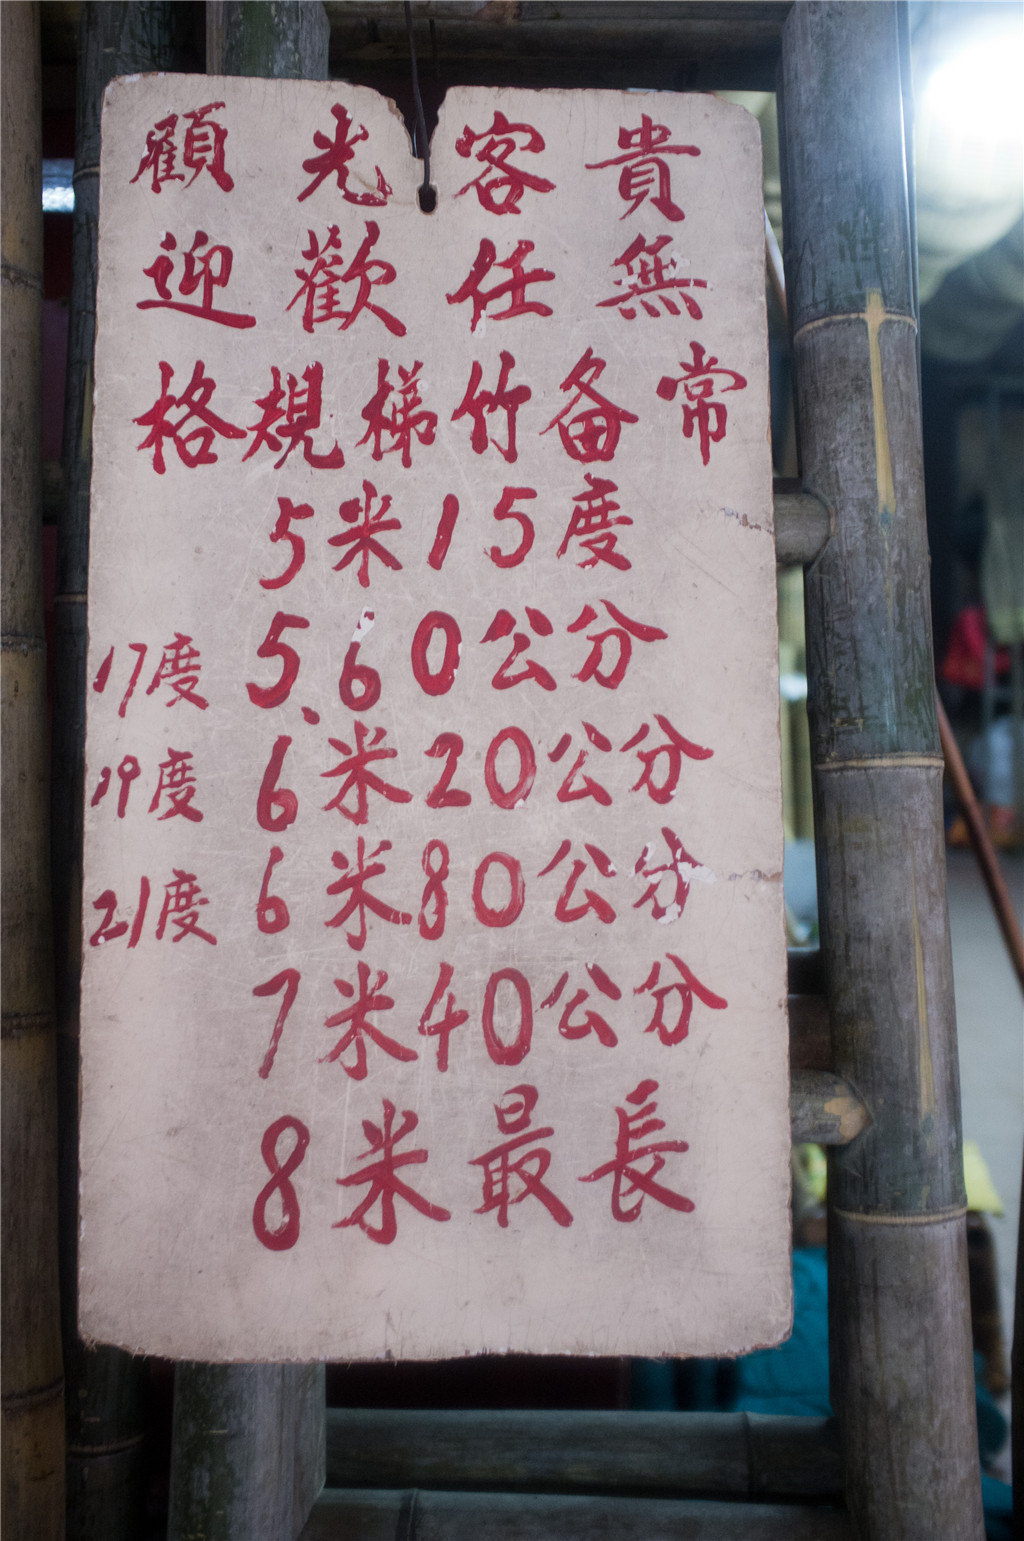 貴客光顧
無任歡迎
常备竹梯規格
5米15度
17度 5.60公分
19度 6米20公分
21度 6米80公分
7米40公分
8米最長